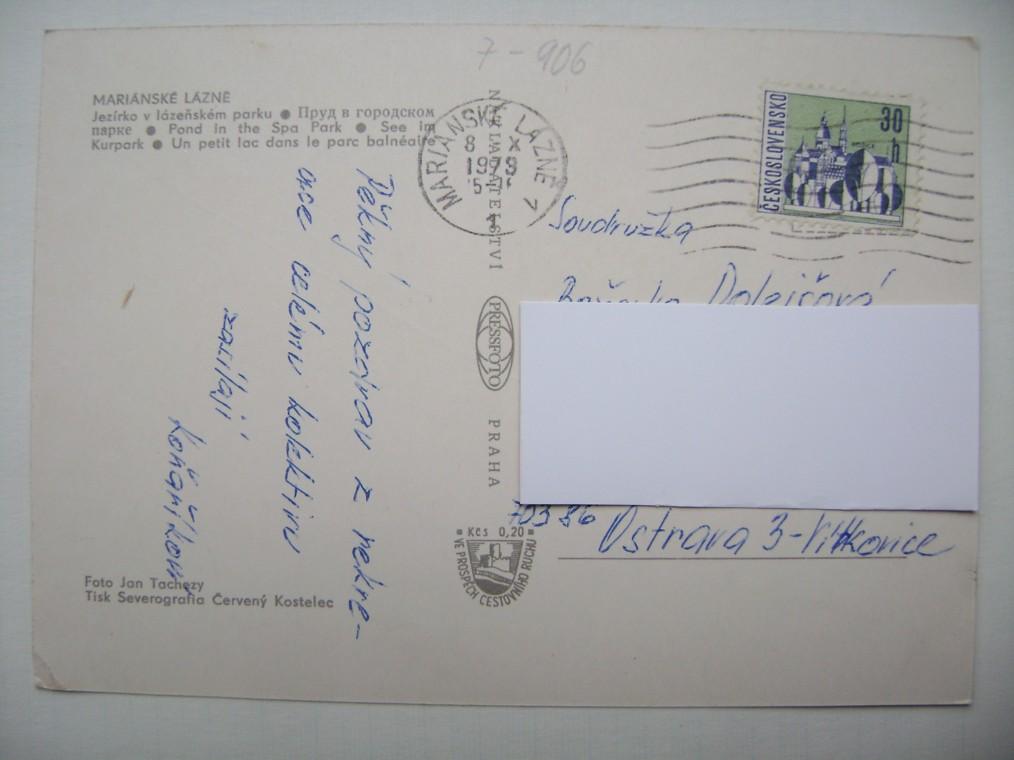 7-906
MARIÁNSKÉ LÁZNĚ
Jezírko v lázeňském parku ● Пруд в городском
парке ● Pond in the Spa Park ● See im
Kurpark ● Un petit lac dans le parc balnéaire
Pěkný pozdrav z rekre-
ace celému kolektivu
zasílají
Foto Jan Tachezy
Tisk Severografia Červený Kostelec
PRESSFOTO
PRAHA
MARIÁNSKÉ LÁZNĚ 7
8 X
1979
1
ČESKOSLOVENSKO
30
h
Soudružka
Dolejšová
703 86 Ostrava 3-Vítkovice
Kčs 0,20
VE PROSPĚCH CESTOVNÍHO RUCHU